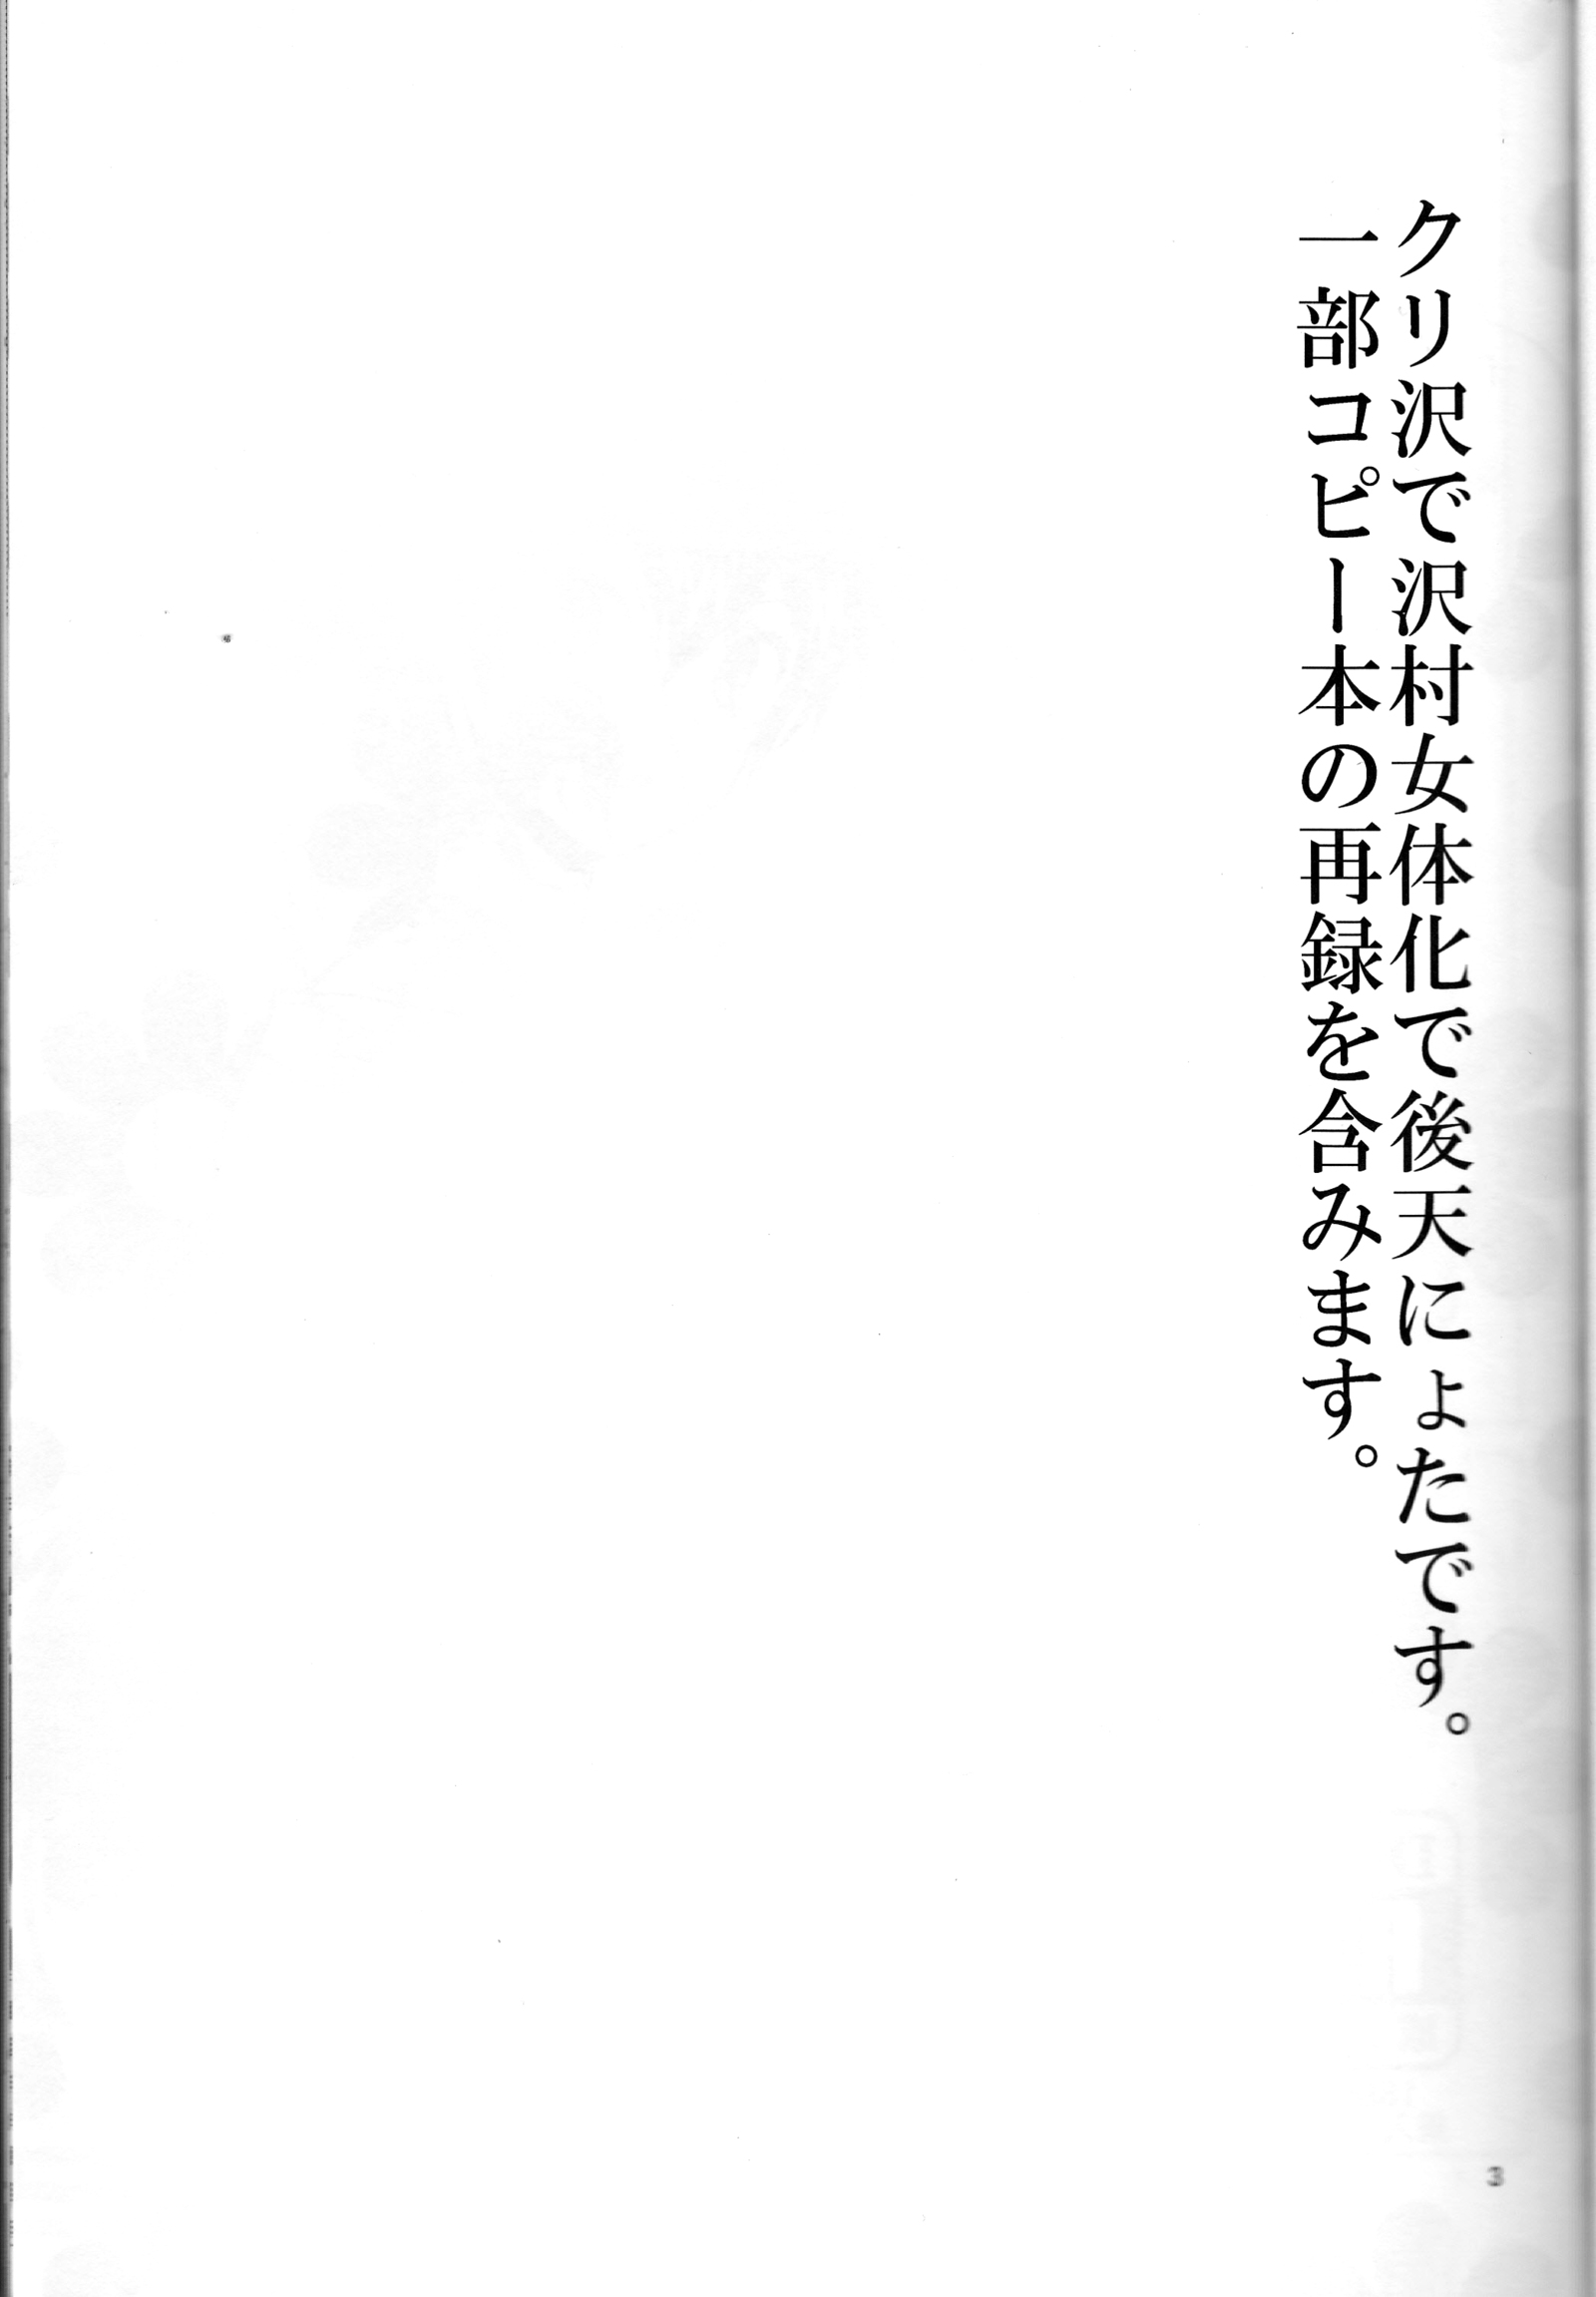 クリ沢で沢村女体化で後天にょたです。
一部コピー本の再録を含みます。
3